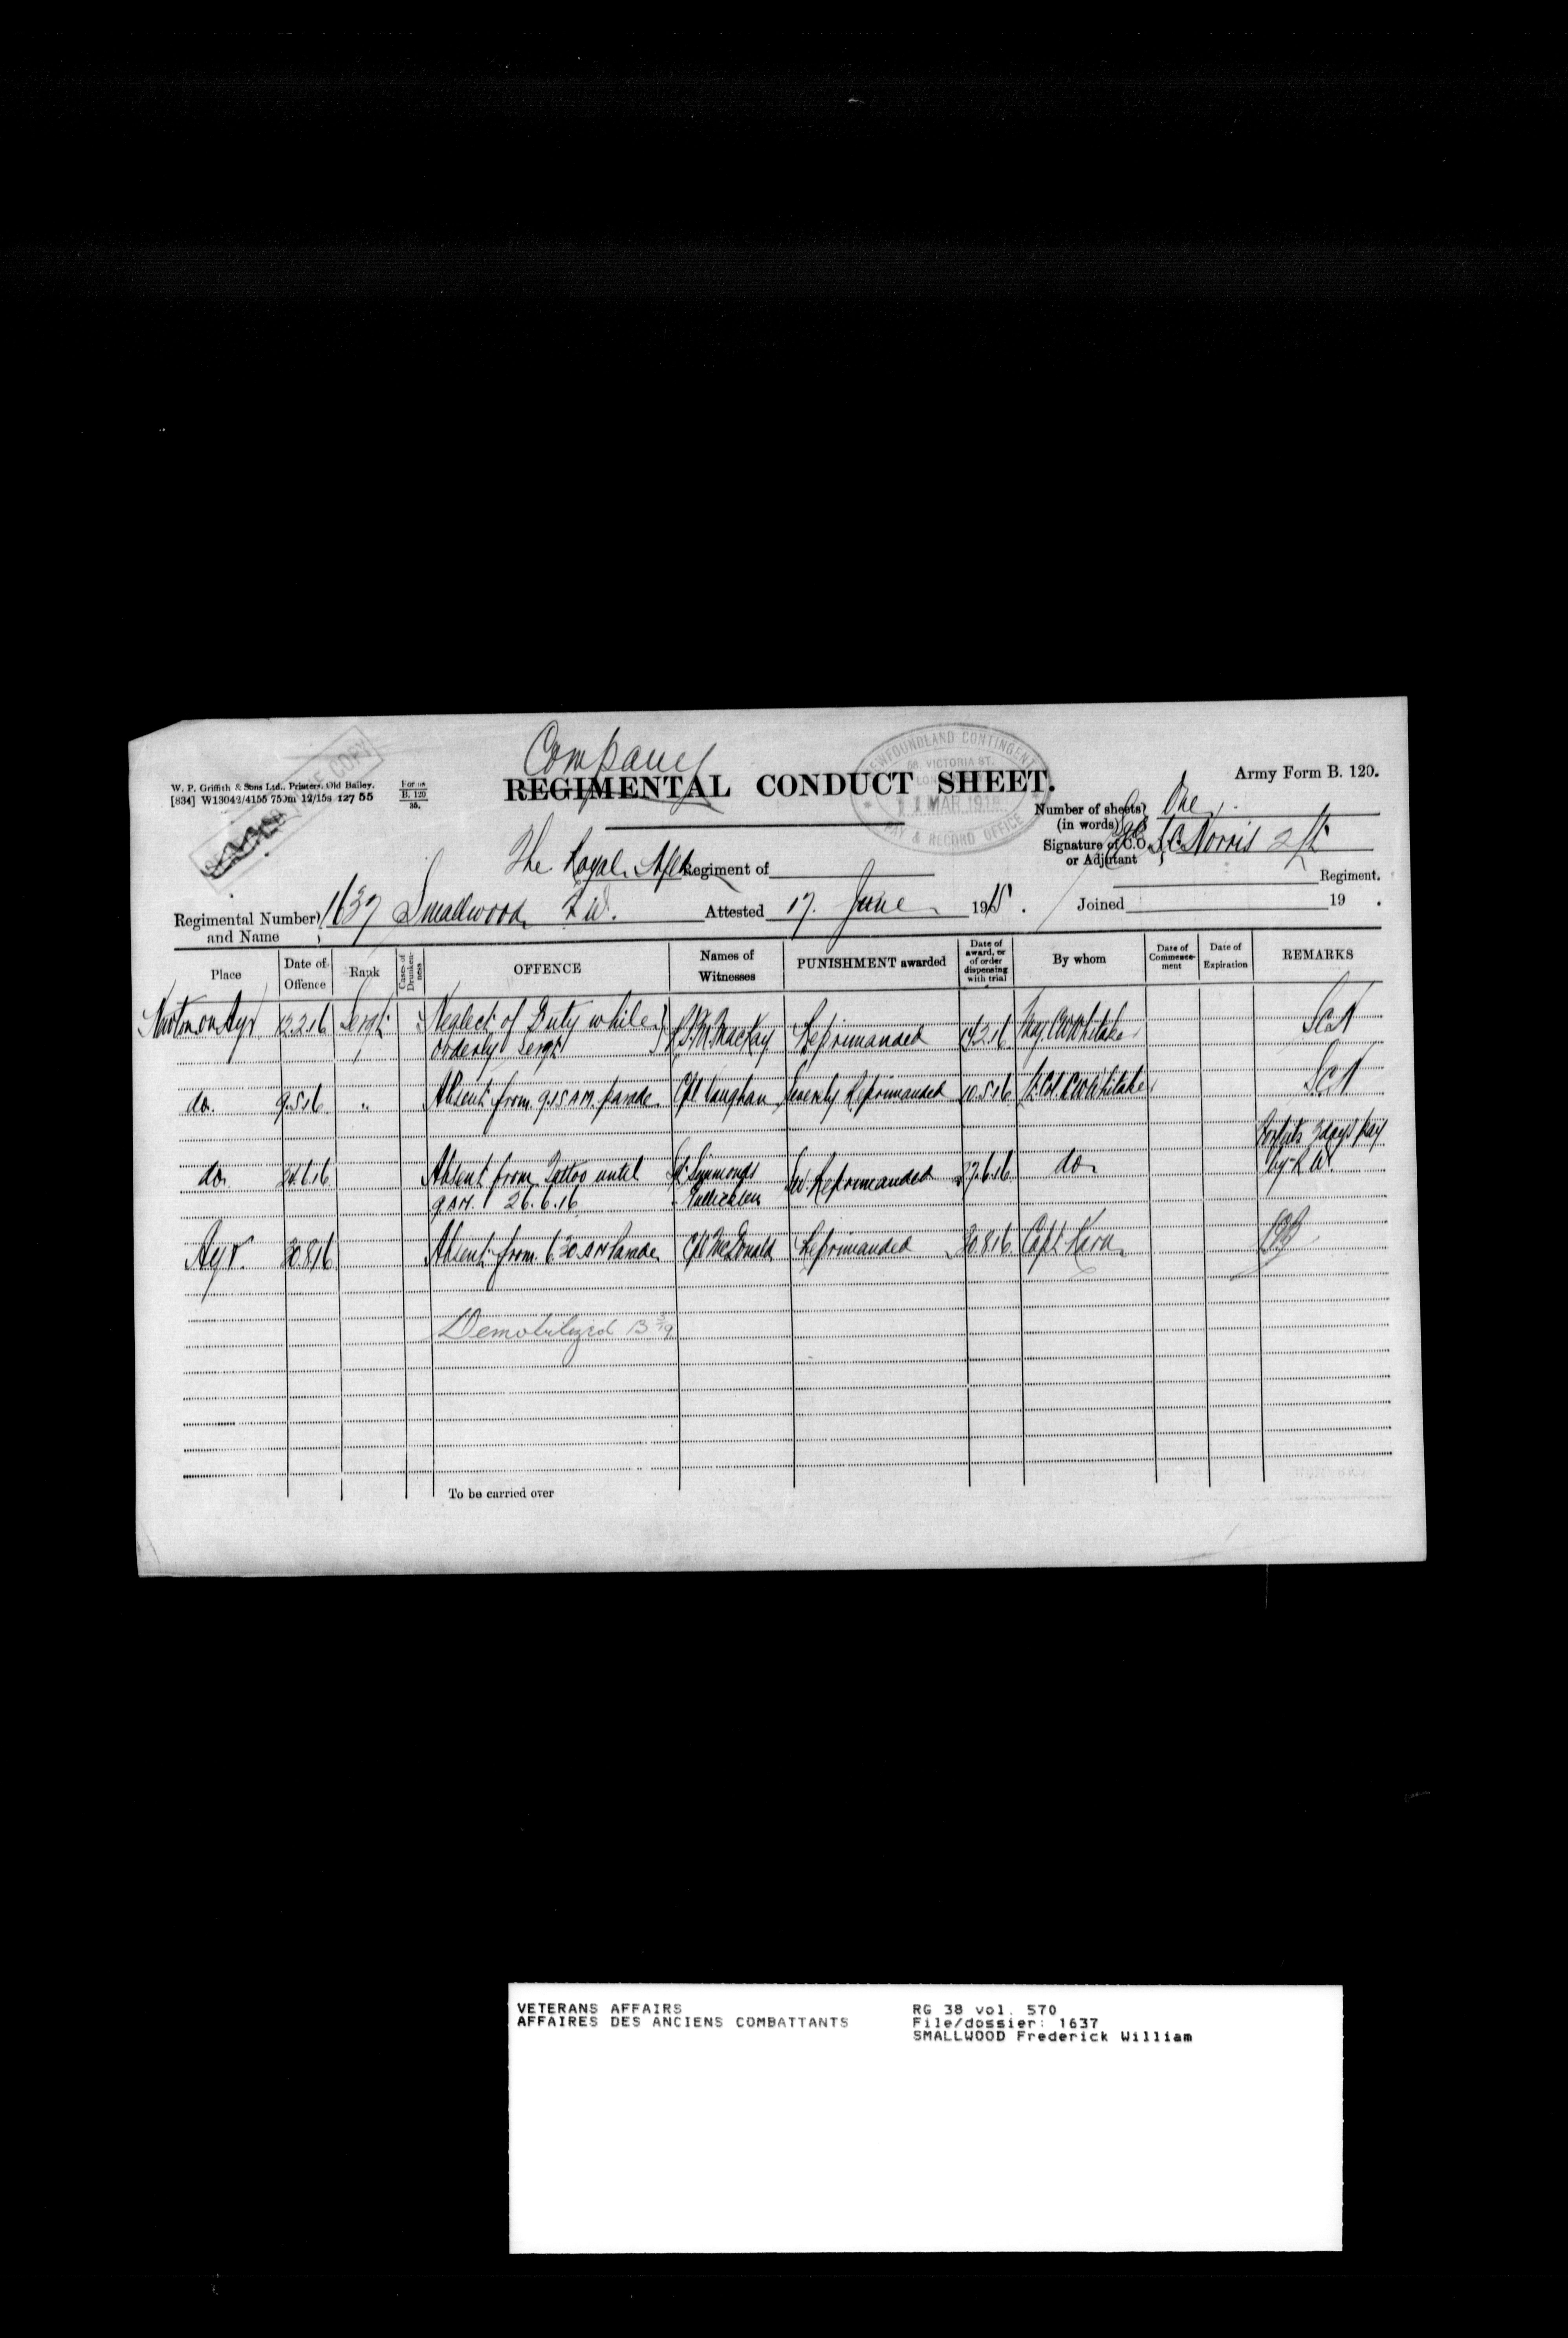 Company
REGIMENTAL CONDUCT SHEET.
Army Form B. 120.
W. P. Griffith & Sons Ltd., Printers, Old Bailey.
[834] W13042/4155 750m 12/15s 127 55
Forms
B. 120
35.
NEWFOUNDLAND CONTINGENT
58, VICTORIA ST.
11 MAR 1919
PAY & RECORD OFFICE
Number of sheets) One
(in words)
Signature of C.O. S.C. Norris 2/Lt
or Adjutant
The Royal Nfld Regiment of
Regiment.
Regimental Number) 1637 Smallwood, F.W. Attested 17. June 1915. Joined 19 .
and Name
Place
Date of Offence
Rank
Cases of Drunken-ness
OFFENCE
Names of Witnesses
PUNISHMENT awarded
Date of award, or of order dispensing with trial
By whom
Date of Commence-ment
Date of Expiration
REMARKS
Newton on Ayr 12.2.16 Sergt Neglect of Duty while R.S.M. MacKay Reprimanded 14.2.16 Maj. C.W. Whitaker
orderly Sergt
do. 9.5.16 " Absent from 9.15 A.M. parade Cpl Vaughan Severely Reprimanded 10.5.16 Lt. Col. C.W. Whitaker
Forfeits 3 days pay
do. Absent from Tattoo until Symmonds Sev. Reprimanded 27.6.16 do. by R.W.
9 A.M. 26.6.16
Ayr. 30.8.16 Absent from 6.30 A.M. Parade Cpl McDonald Reprimanded 30.8.16 Capt.
Demobilized
To be carried over
VETERANS AFFAIRS
AFFAIRES DES ANCIENS COMBATTANTS
RG 38 vol. 570
File/dossier: 1637
SMALLWOOD Frederick William